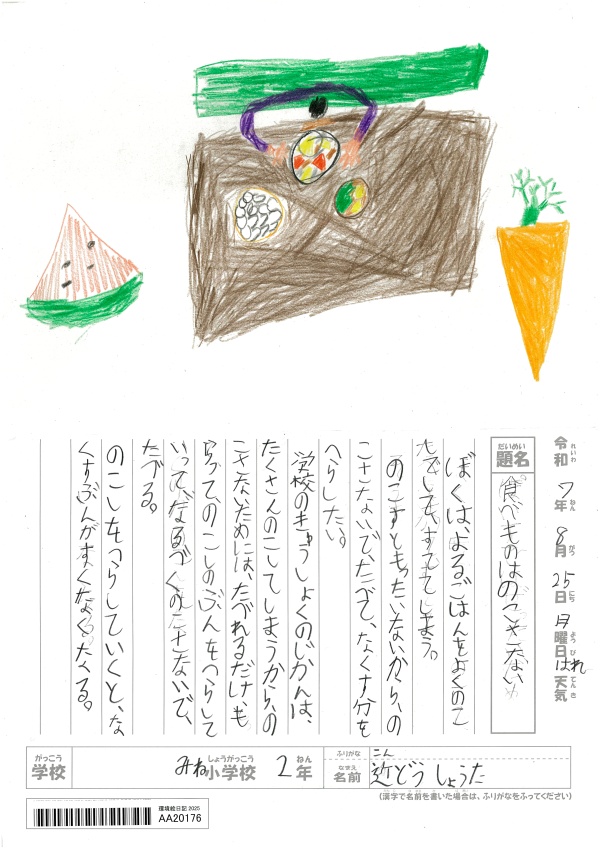 令和7年8月25日月曜日はれ天気
れいわ ねん がつ にち ようび てんき
だいめい
題名 食べものはのこさない
ぼくは、よるごはんをよくのこ
もでしても、すててしまう。
のこすともったいないから、の
こさないで、たべて、なくす分を
へらしたい。
学校のきゅうしょくのじかんは、
たくさんのこしてしまうから、の
こさないためには、たべれるだけ、も
らって、のこしのぶんをへらして
いって、なるべくのこさないで、
たべる。
のこしをへらしていくと、な
くすぶんがすくなくなる。
がっこう
学校 みね小学校 2年
しょうがっこう ねん
ふりがな こん
なまえ
名前 近どうしょうた
(漢字で名前を書いた場合は、ふりがなをふってください)
環境絵日記 2025
AA20176